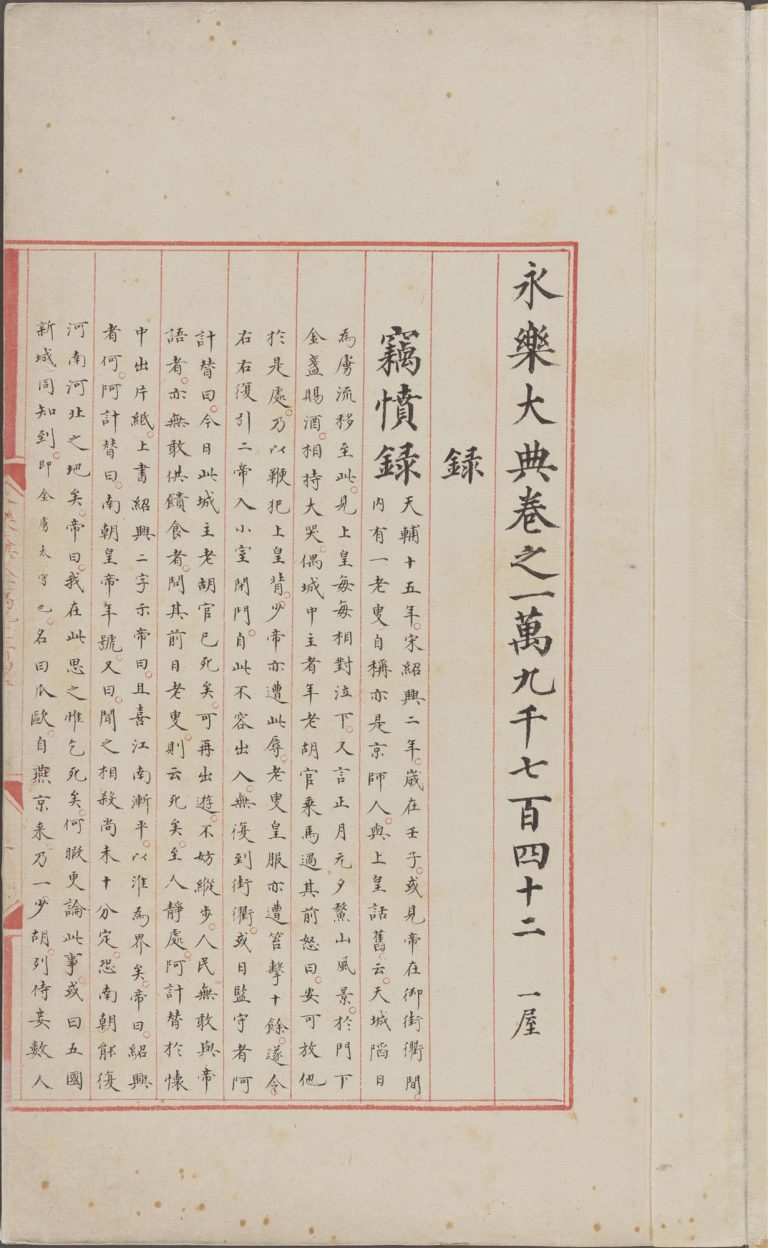 永樂大典卷之一萬九千七百四十二 一屋
録
竊憤録
天輔十五年宋紹興二年歲在壬子或見帝在御街衢間
內有一老叟自稱亦是京師人與上皇話舊云天城䧟日
為虜流移至此見上皇每每相對泣下又言正月元夕鰲山風景於門下
金盞賜酒相持大哭偶城中主者年老胡官乗馬過其前怒曰安可放他
於是處乃以鞭犯上皇背少帝亦遭此辱老叟皇服亦遭笞擊十餘遂令
右右復引二帝入小室閉門自此不容出入無復到街衢或日監守者阿
計替曰今日此城主老胡官已死矣可再出遊不妨縱步人民無敢與帝
語者亦無敢供饋食者問其前日老叟則云死矣至人靜處阿計替於懷
中出片紙上書紹興二字示帝曰且喜江南漸平以淮為界矣帝曰紹興
者何阿計替曰南朝皇帝年號又曰聞之相殺尚未十分定恐南朝能復
河南河北之地矣帝曰我在此思之惟乞死矣何暇更論此事或曰五國
新城同知到即金虜太守也名曰瓜歐自燕京来乃一少胡列侍妾數人